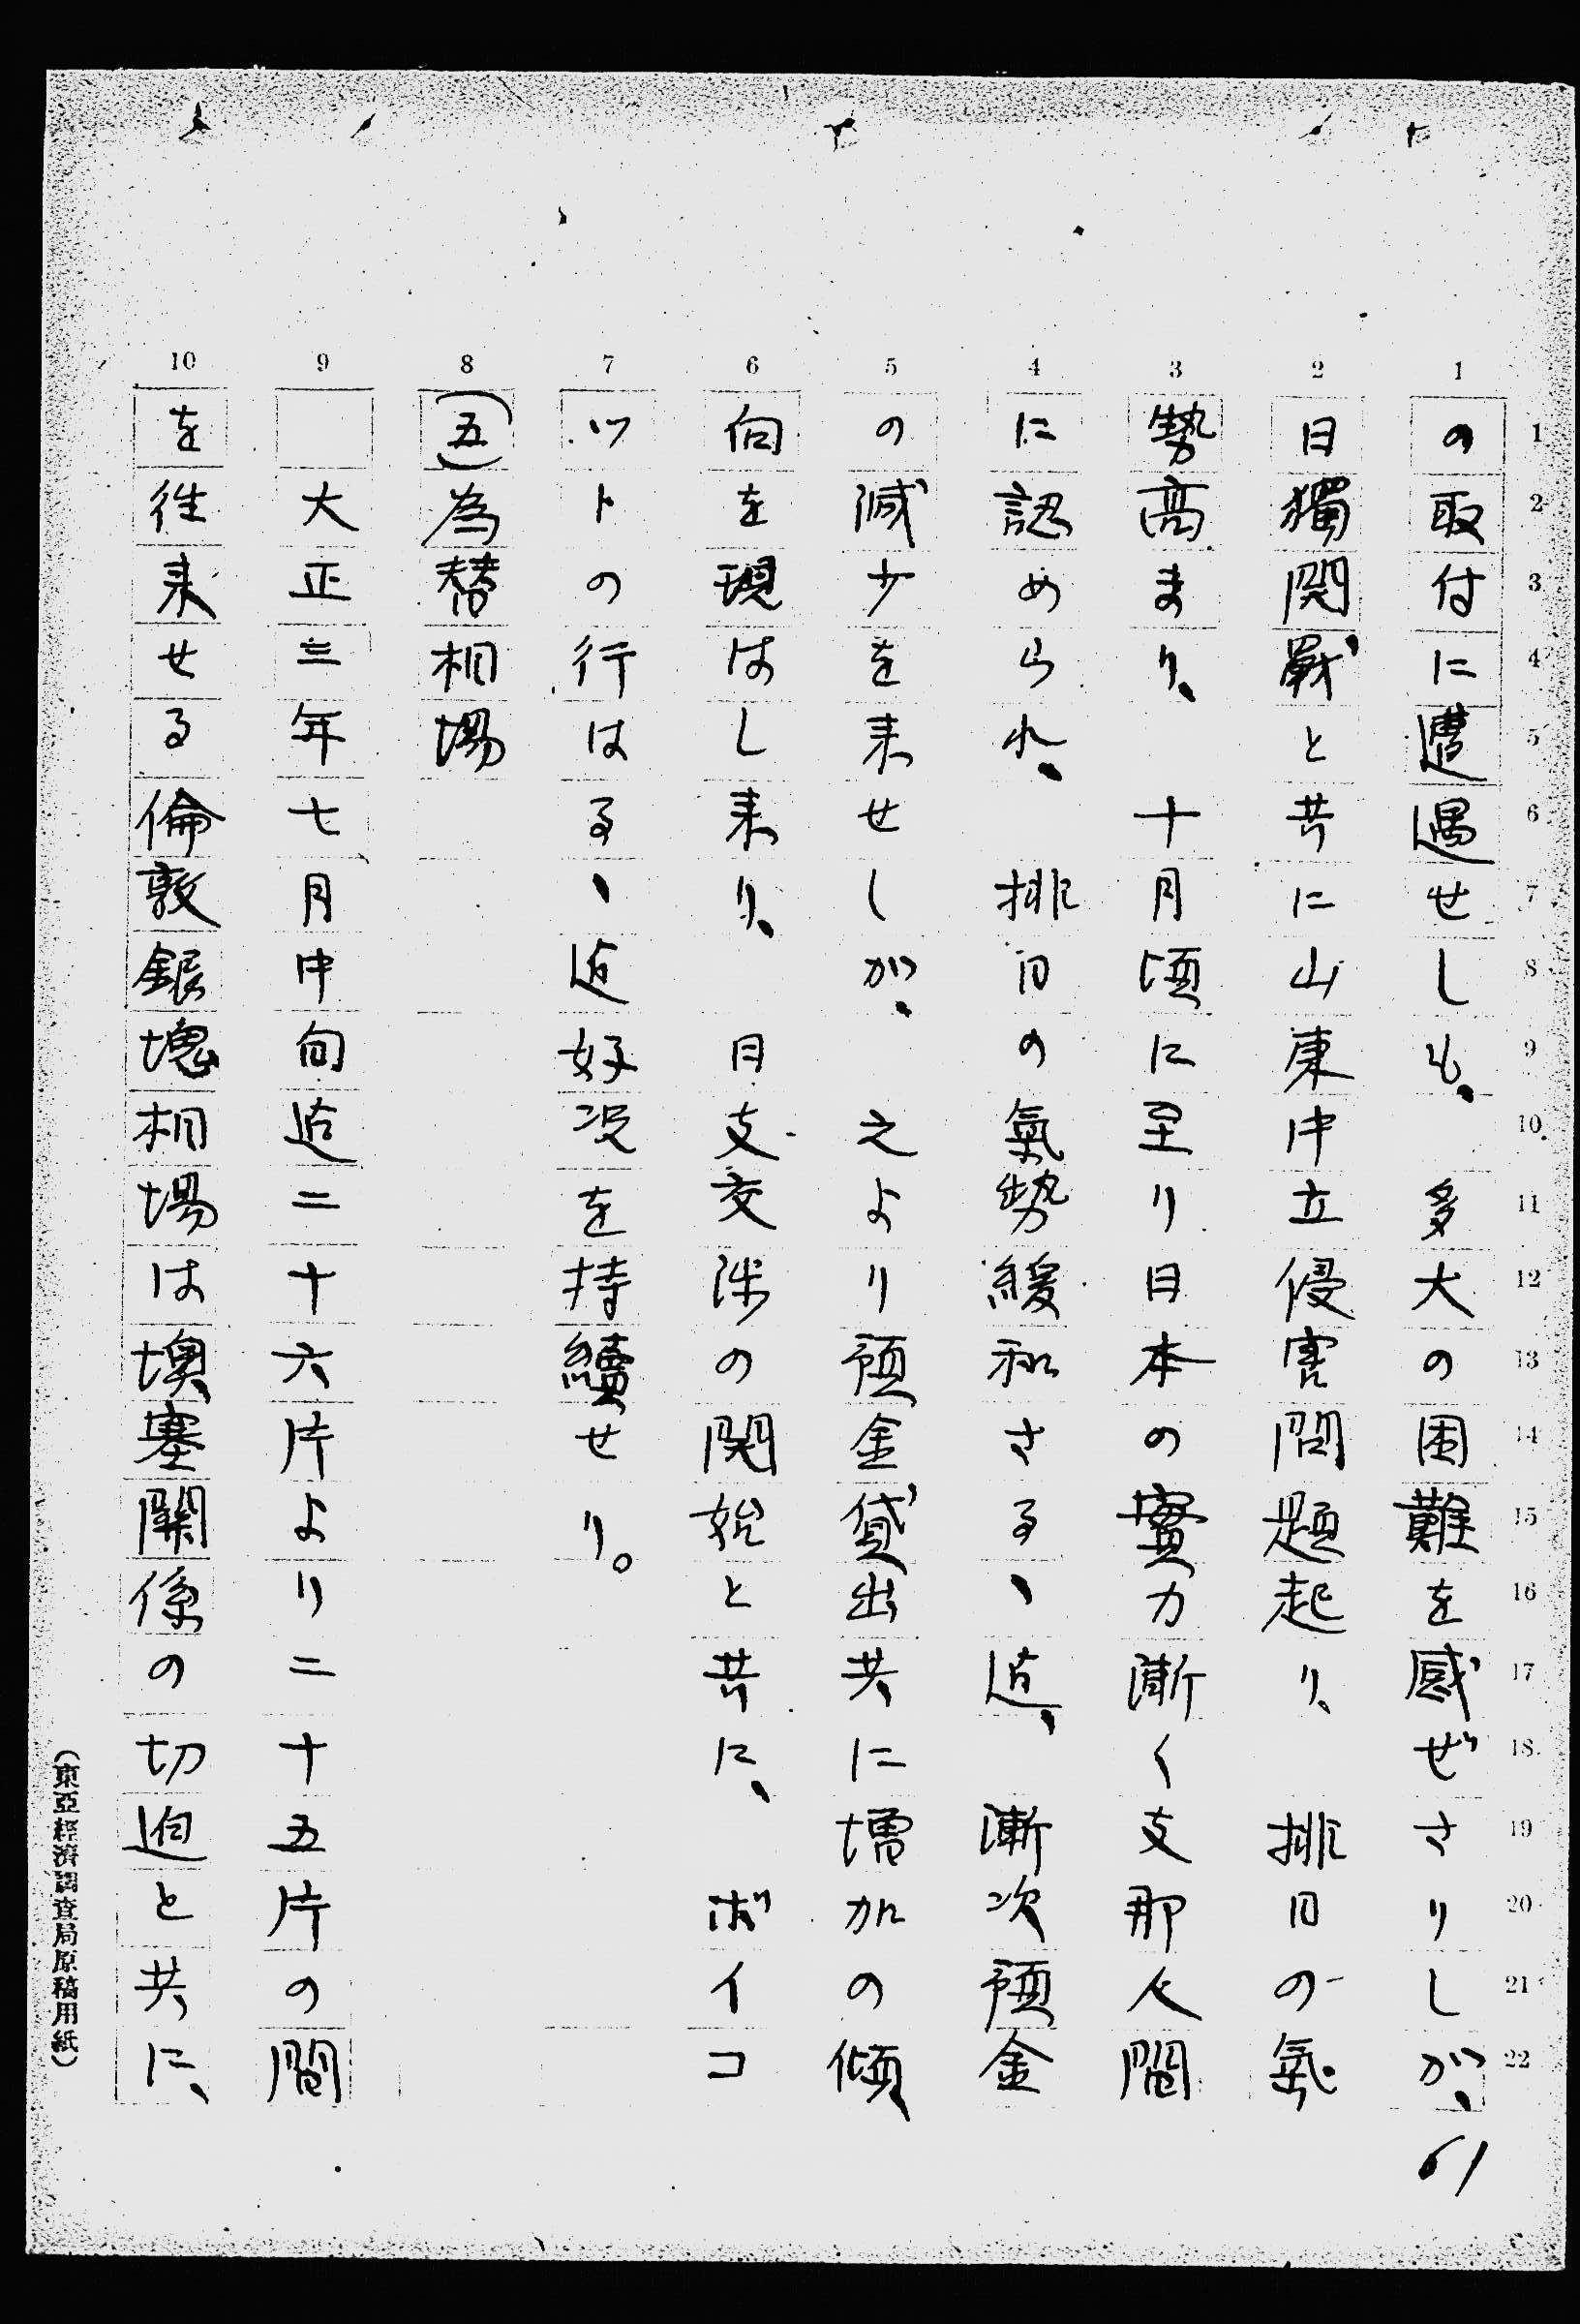 1 2 3 4 5 6 7 8 9 10
1 2 3 4 5 6 7 8 9 10 11 12 13 14 15 16 17 18 19 20 21 22
の取付に遭遇せしも、多大の困難を感ぜさりしが、
日獨開戰と共に山東中立侵害問題起り、排日の氣
勢高まり、十月頃に至り日本の實力漸く支那人間
に認められ、排日の氣勢緩和さるゝ迠、漸次預金
の減少を来せしが、之より預金貸出共に増加の傾
向を現はし来り、日支交渉の開始と共に、ボイコ
ツトの行はるゝ迠好況を持續せり。
(五)為替相場
大正三年七月中旬迠二十六片より二十五片の間
を往来せる倫敦銀塊相場は墺塞關係の切迫と共に、
61
(東亞經濟調査局原稿用紙)